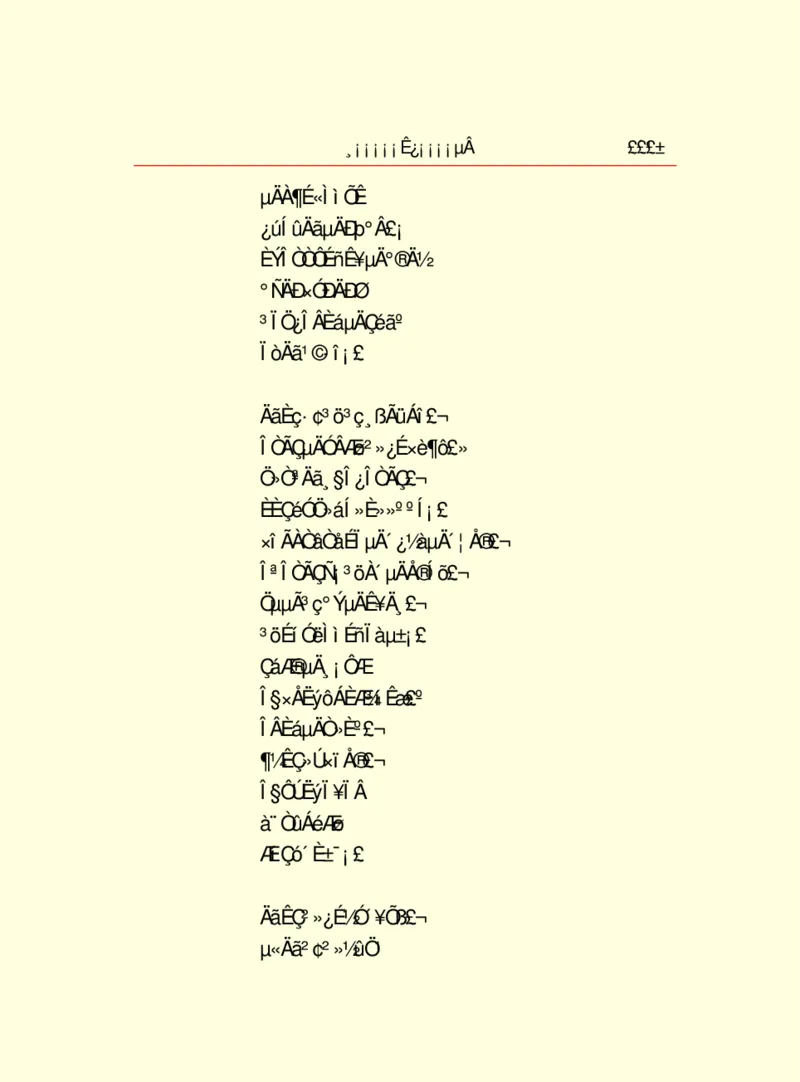 ¸¡¡¡¡¡Ê¿¡¡¡¡µÂ £££±
µÄÀ¶É«Ìì ÕÊ
¿úÍ ûÄãµÄÐþ°Â£¡
ÈÝÎ ÒÒÔÉñÊ¥µÄ°®Ä½
°ÑÄÐ×ÓÐÄÐØ
³Ï Ö¿Î ÂÈáµÄÇéãº
Ï òÄã¹©·î¡£

ÄãÈç·¢³ö³ç¸ßÃüÁî£¬
Î ÒÃÇµÄÓÂÆø²»¿É×è¶ô£»
Ö»ÒªÄã¸§Î¿Î ÒÃÇ£¬
ÈÈÇéÓÖ»áÍ»È»»ººÍ¡£
×î ÃÀÒâÒåÉÏ µÄ´¿½àµÄ´¦Å®£¬
Îª Î ÒÃÇÑ¡³öÀ´µÄÅ®Íõ£¬
ÖµµÃ³ç°ÝµÄÊ¥Ä¸£¬
³öÉí ÓëÌì ÉñÏàµ±¡£
ÇáÆ®µÄ¸¡ÔÆ
Î§×ÅËýôÁÈÆ¾í Êæ£º
Î ÂÈáµÄÒ»Èº£¬
¶¼ÊÇ»Ú×ï Å®£¬
Î§ÔÚËýÏ¥Ï Â
à¨ÒûÁéÆø
ÆíÇó´È±¯¡£

ÄãÊÇ²»¿É½Ó´¥Õß£¬
µ«Äã²¢²»½ûÖ